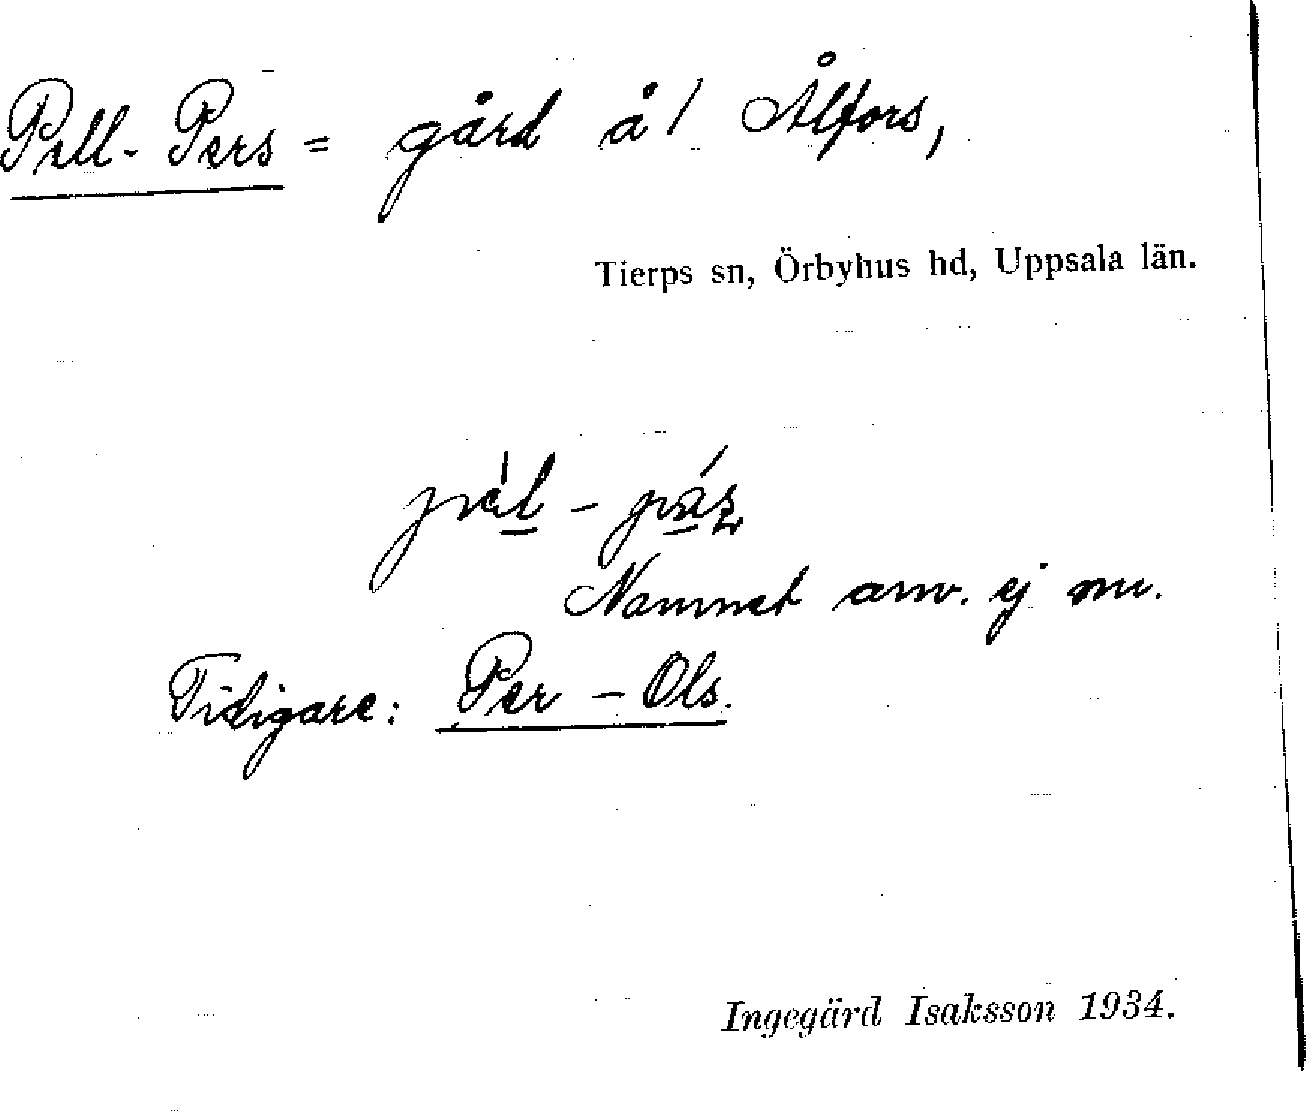 Pell-Pers = gård å/ Ålfors,
Tierps sn, Örbyhus hd, Uppsala län.
Namnet anv. ej nu.
Tidigare: Per - Ols.
Ingegärd Isaksson 1934.